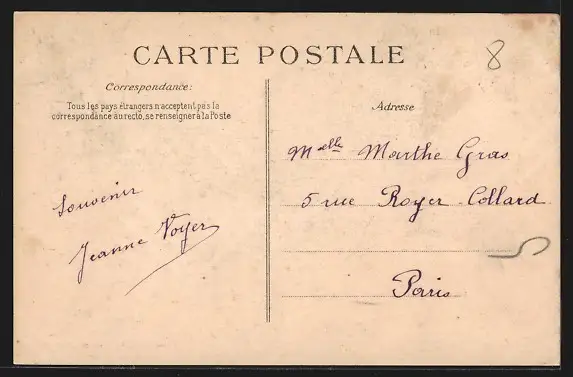 CARTE POSTALE
8
Correspondance:
Tous les pays étrangers n'acceptent pas la
correspondance au recto, se renseigner à la Poste
Souvenir
Jeanne Voyer
Adresse
Melle Marthe Gras
5 rue Royer-Collard
Paris